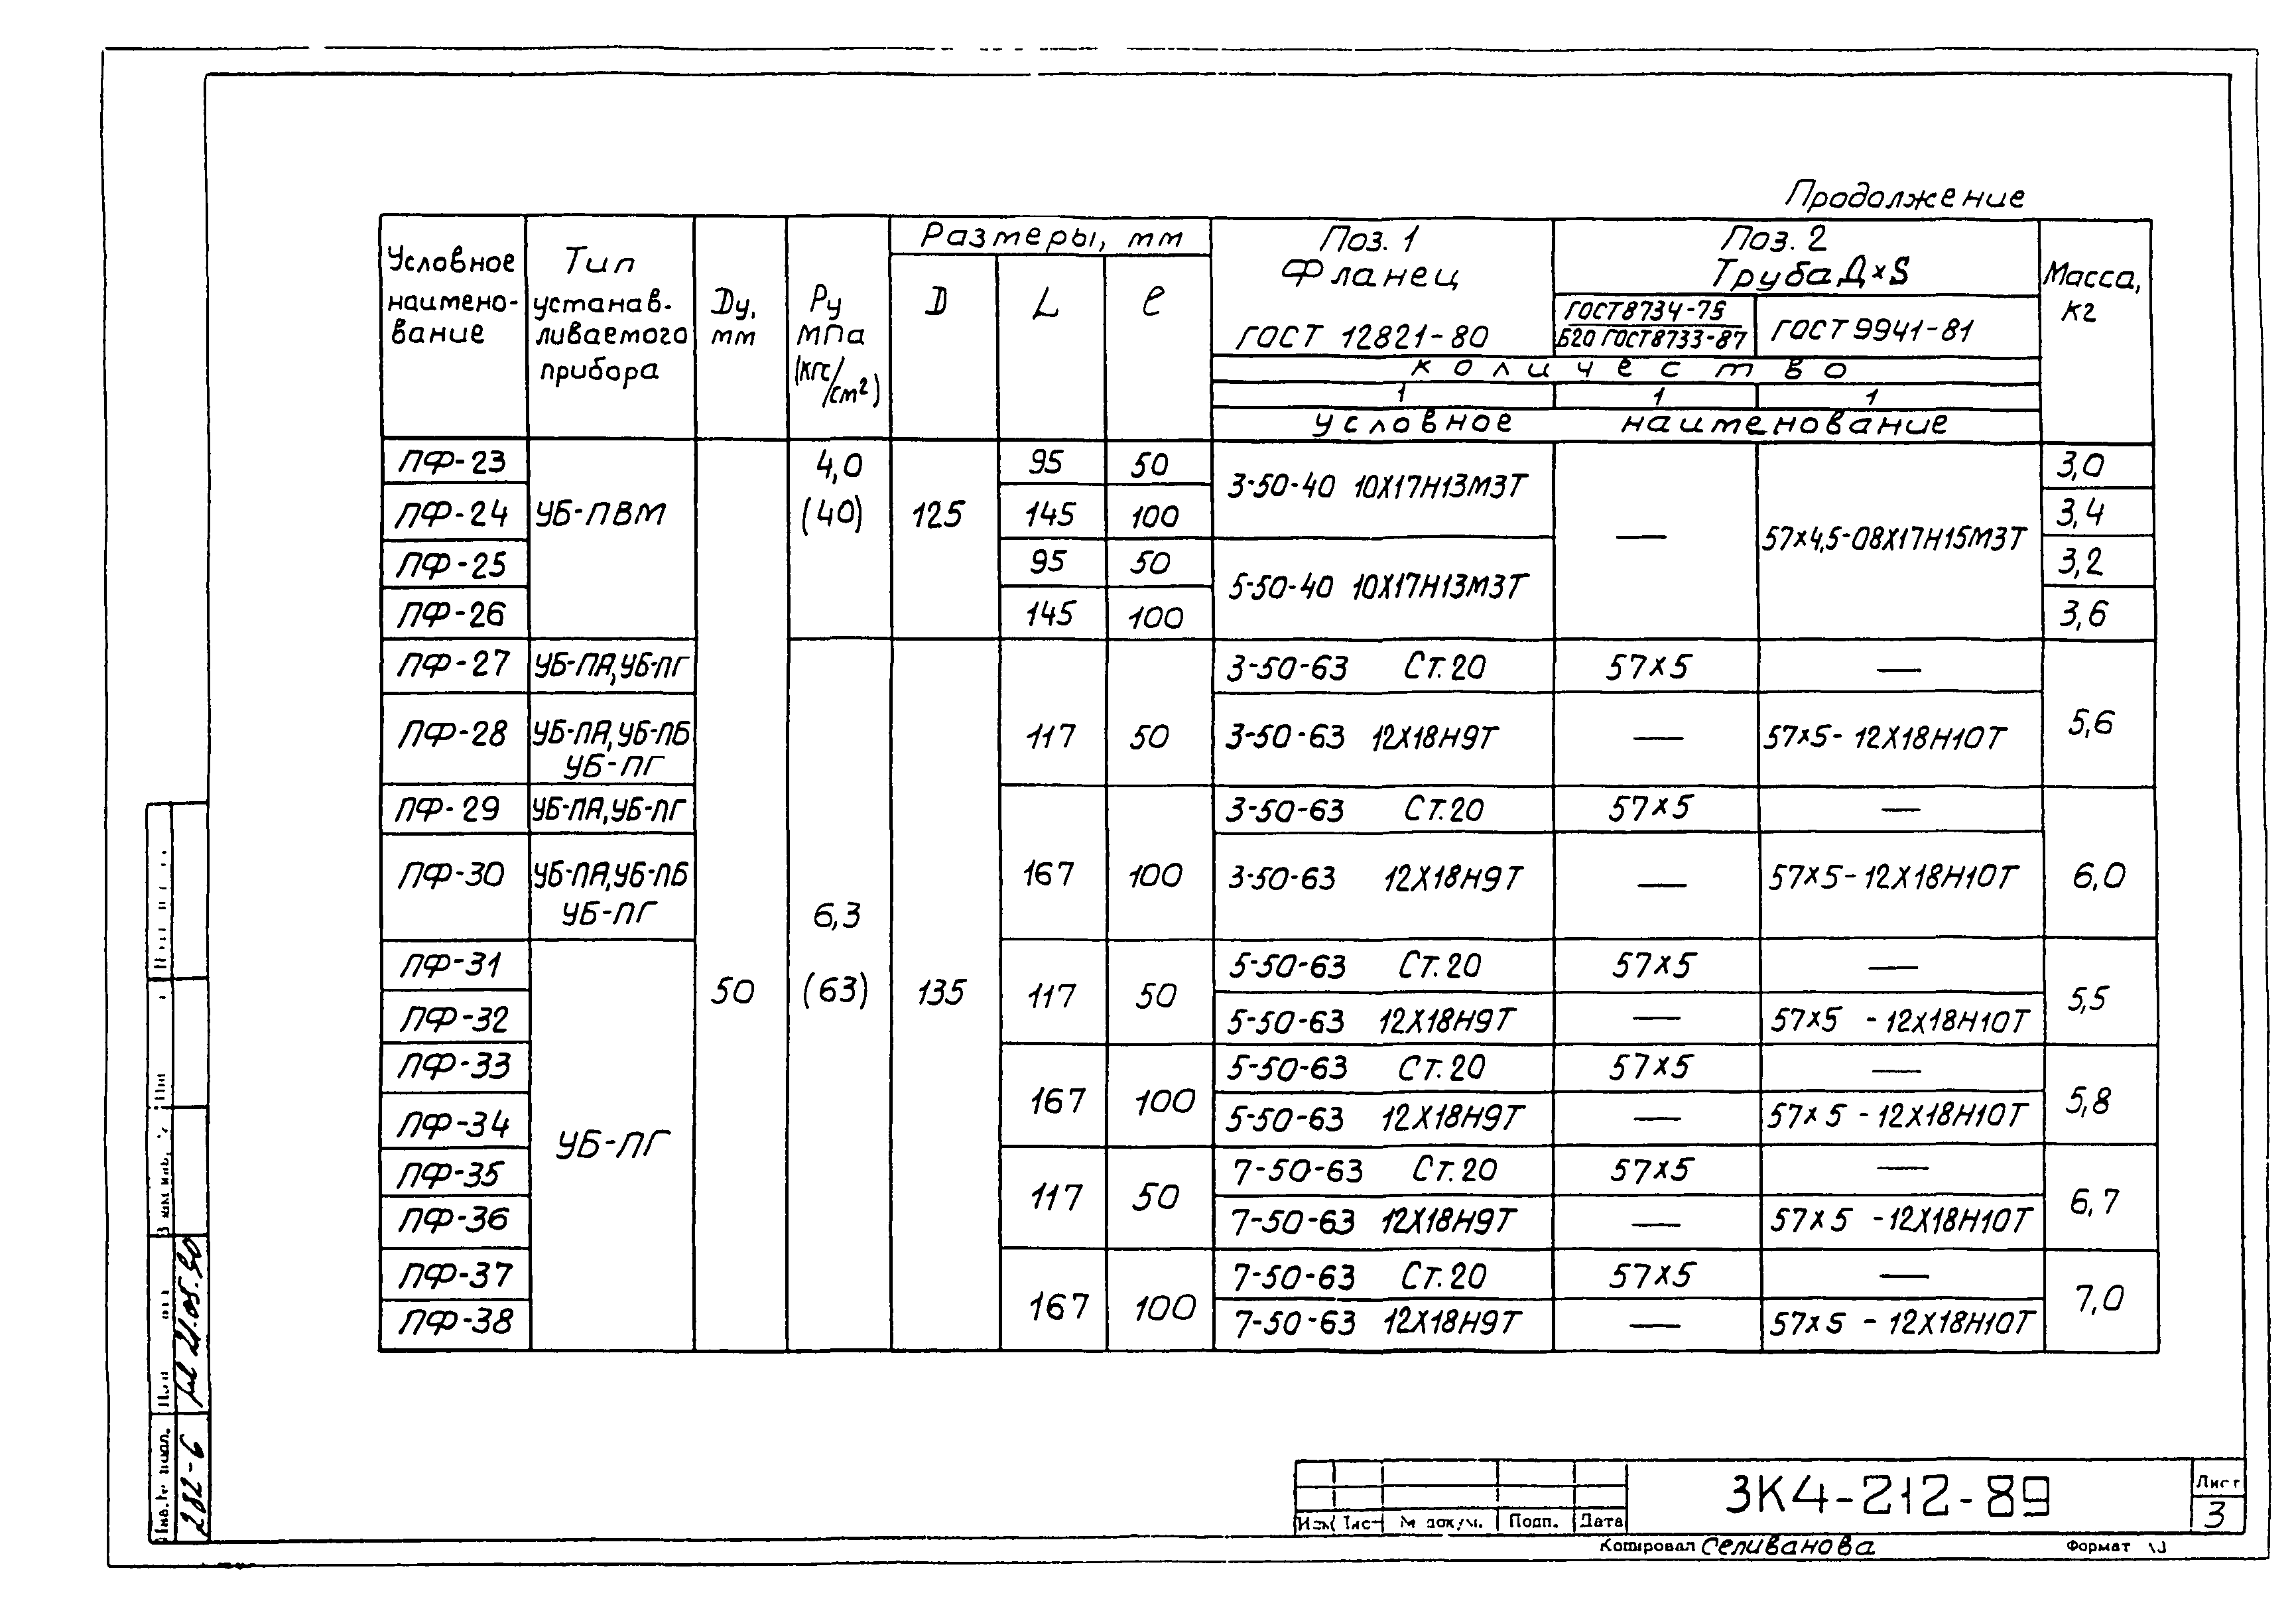 Продолжение
Условное наимено- вание
Тип устанав- ливаемого прибора
Dу, мм
Ру МПа (кгс/см²)
Размеры, мм
D L ℓ
Поз. 1 Фланец ГОСТ 12821-80
Поз. 2 Труба Д×S
ГОСТ 8734-75 / Б20 ГОСТ 8733-87
ГОСТ 9941-81
Масса, кг
количество
1 1 1
условное наименование
ПФ-23 УБ-ПВМ 50 4,0 (40) 125 95 50 3-50-40 10Х17Н13М3Т — 57×4,5-08Х17Н15М3Т 3,0
ПФ-24 145 100 3,4
ПФ-25 95 50 5-50-40 10Х17Н13М3Т 3,2
ПФ-26 145 100 3,6
ПФ-27 УБ-ПА, УБ-ПГ 6,3 (63) 135 117 50 3-50-63 Ст.20 57×5 — 5,6
ПФ-28 УБ-ПА, УБ-ПБ УБ-ПГ 3-50-63 12Х18Н9Т — 57×5-12Х18Н10Т
ПФ-29 УБ-ПА, УБ-ПГ 167 100 3-50-63 Ст.20 57×5 — 6,0
ПФ-30 УБ-ПА, УБ-ПБ УБ-ПГ 3-50-63 12Х18Н9Т — 57×5-12Х18Н10Т
ПФ-31 УБ-ПГ 117 50 5-50-63 Ст.20 57×5 — 5,5
ПФ-32 5-50-63 12Х18Н9Т — 57×5 -12Х18Н10Т
ПФ-33 167 100 5-50-63 Ст.20 57×5 — 5,8
ПФ-34 5-50-63 12Х18Н9Т — 57×5 -12Х18Н10Т
ПФ-35 117 50 7-50-63 Ст.20 57×5 — 6,7
ПФ-36 7-50-63 12Х18Н9Т — 57×5 -12Х18Н10Т
ПФ-37 167 100 7-50-63 Ст.20 57×5 — 7,0
ПФ-38 7-50-63 12Х18Н9Т — 57×5 -12Х18Н10Т
21.05.90
282-6
№ докум. Подп. Дата
ЗК4-212-89
Лист
3
Копировал Селиванова Формат